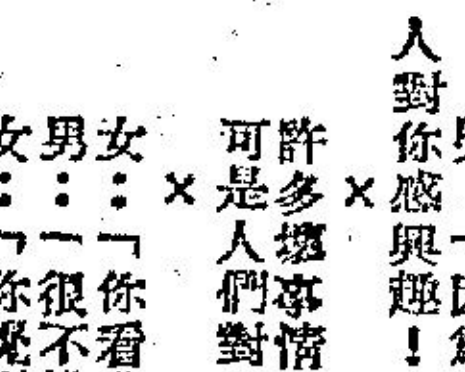 人對你感興趣！
×
許多壞事情
可是人們對
×
女：「你看
男：「很不
女：「你覺